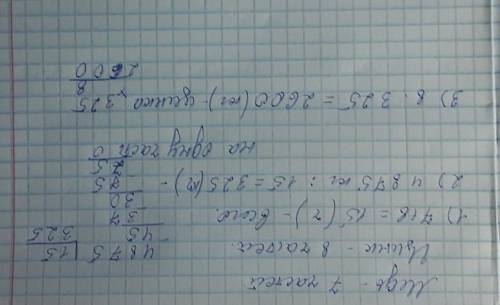 Медь - 7 частей
Цинк - 8 частей.
1) 7+8 = 15 (ч) - всего
2) 4875 кг : 15 = 325 (кг) -
на одну часть
3) 8 · 325 = 2600 (кг) - цинка
4875 | 15
45 325
37
30
75
75
0
325
8
2600